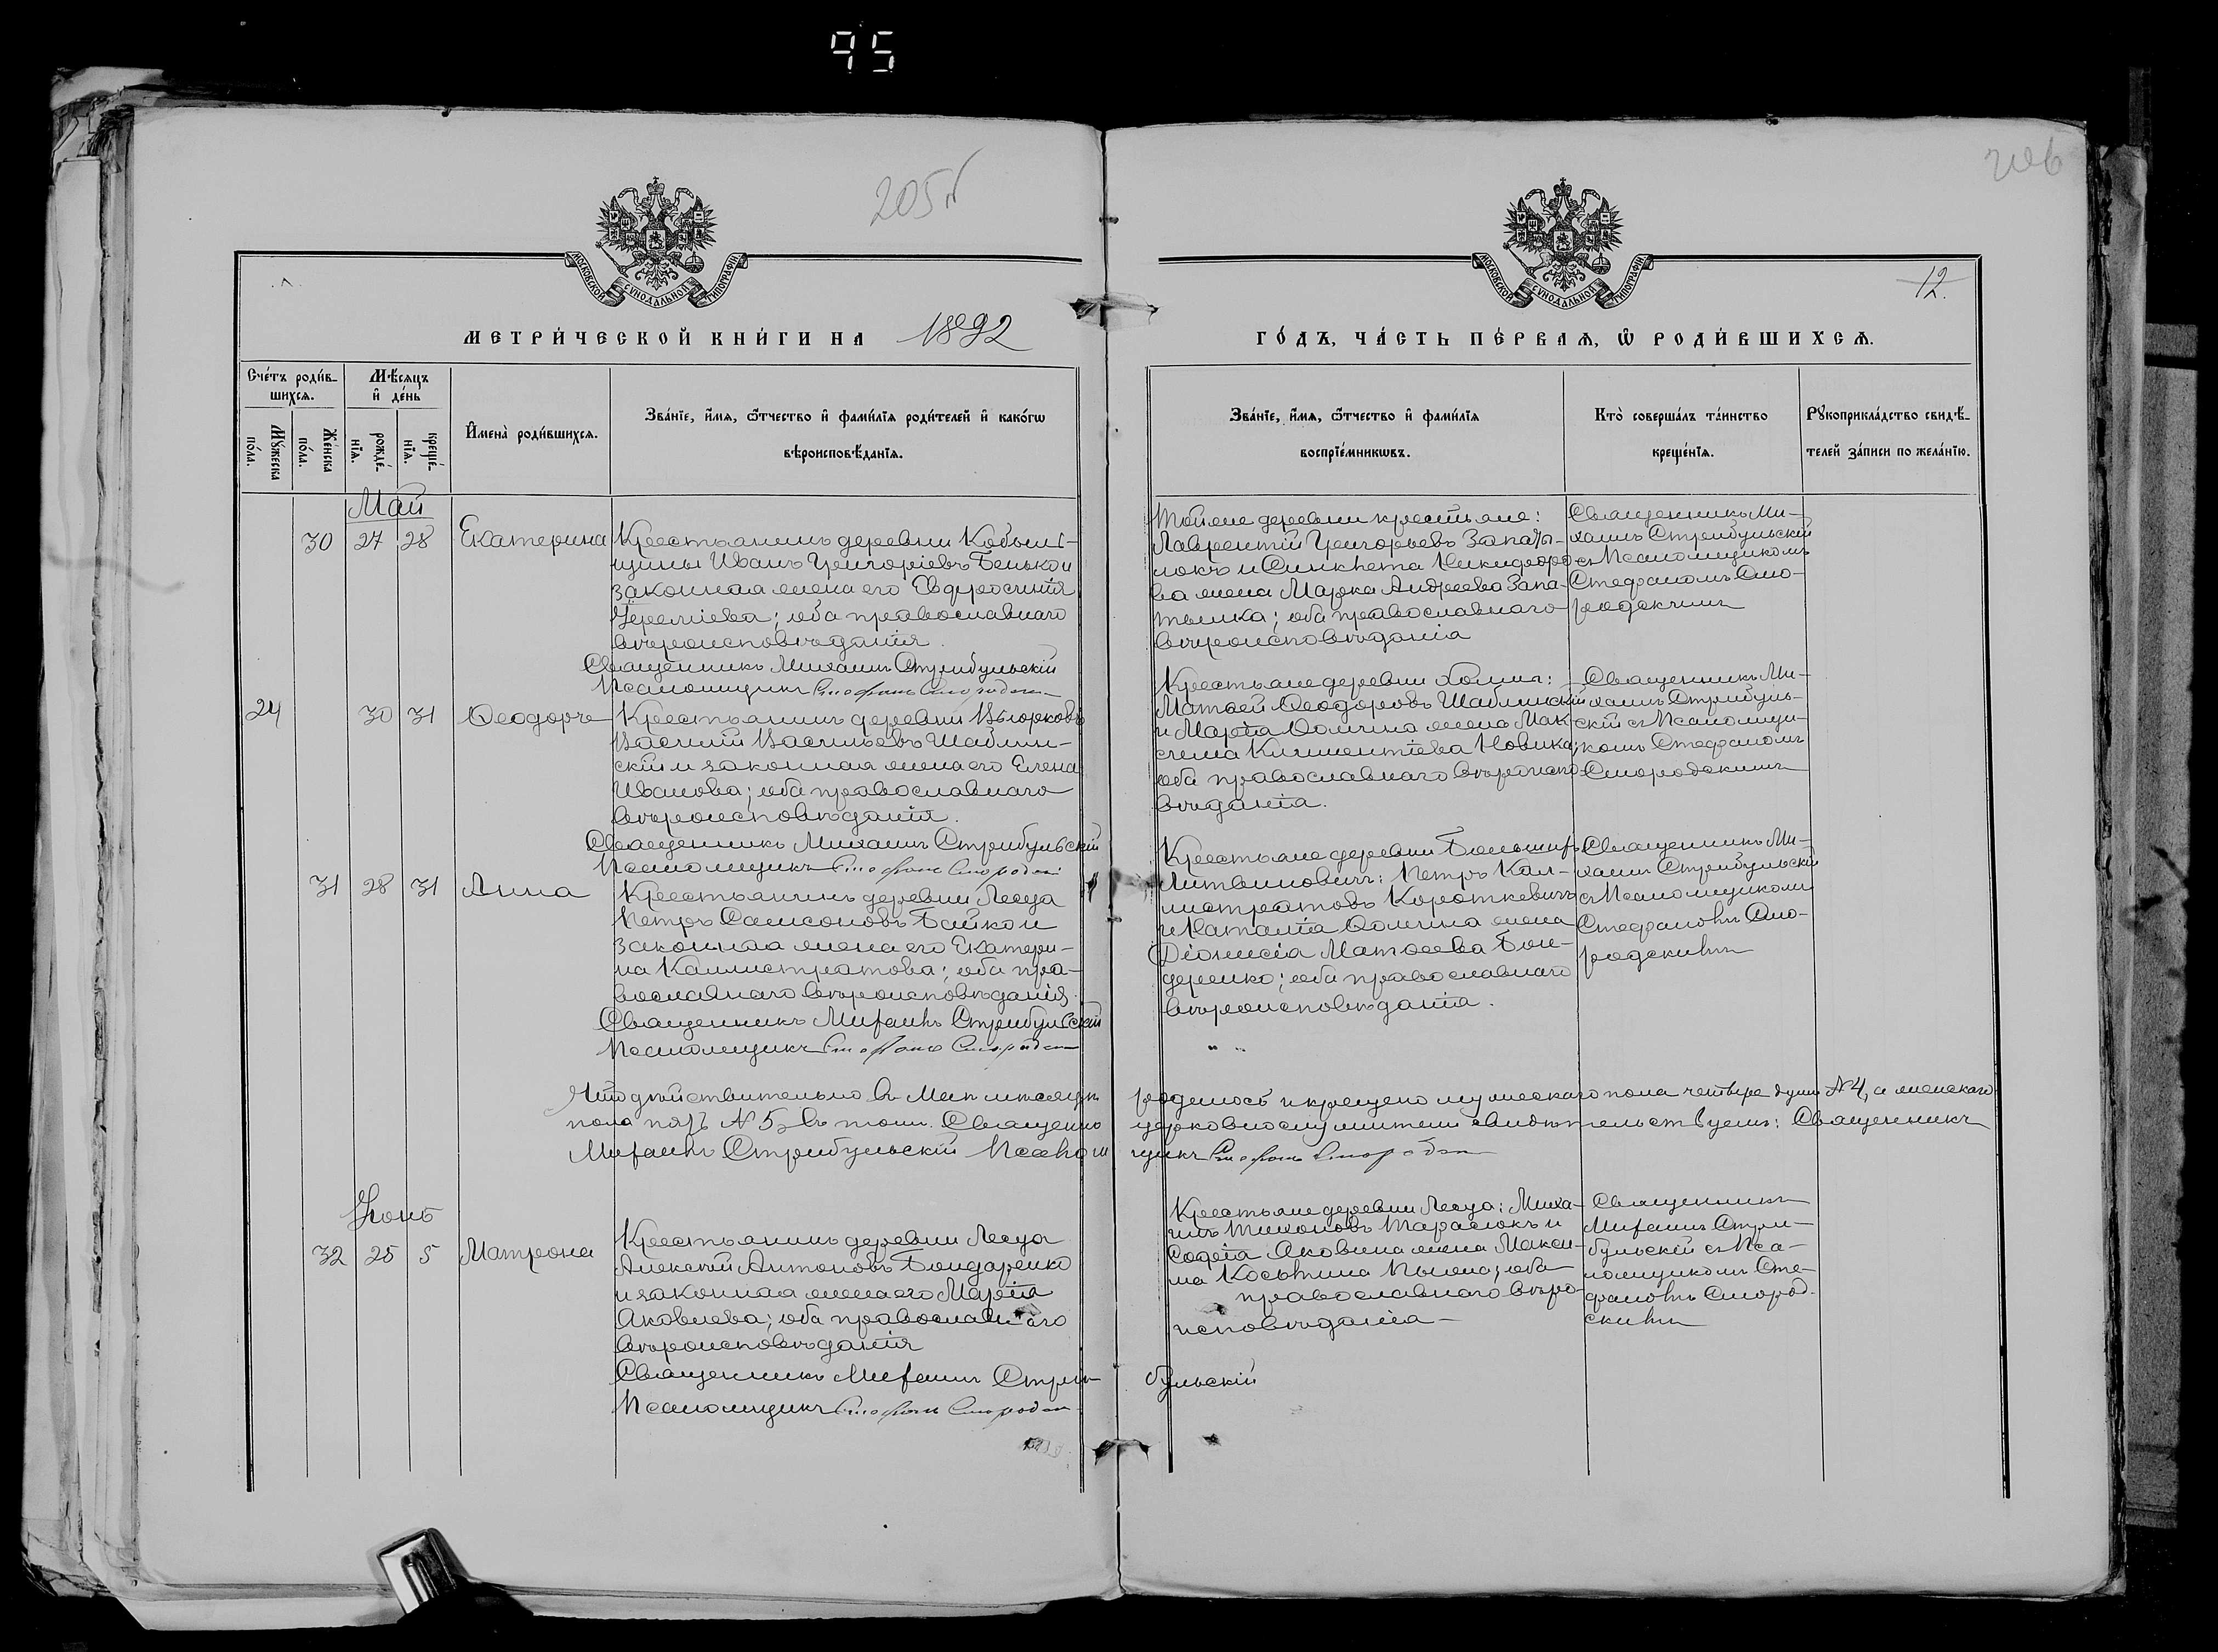 95
205
206
МОСКОВСКОЙ СѴНОДАЛЬНОЙ ТИПОГРАФІИ
МОСКОВСКОЙ СѴНОДАЛЬНОЙ ТИПОГРАФІИ
12.
МЕТРИ́ЧЕСКОЙ КНИ́ГИ НА 1892
ГО́ДЪ, ЧА́СТЬ ПЕ́РВАѦ, Ѽ РОДИ́ВШИХСѦ.
Сче́тъ роди́в-
шихсѧ.
Мꙋжеска
по́ла.
Же́нска
по́ла.
Мѣ́сѧцъ
и҆ де́нь
рожде́-
нїѧ.
креще́-
нїѧ.
И҆мена̀ роди́вшихсѧ.
Зва́нїе, и҆́мѧ, ѻ҆́тчество и҆ фами́лїѧ роди́телей и҆ како́гѡ
вѣроисповѣ́данїѧ.
Зва́нїе, и҆́мѧ, ѻ҆́тчество и҆ фами́лїѧ
воспрїе́мникѡвъ.
Кто̀ соверша́лъ та́инство
креще́нїѧ.
Рꙋкоприкла́дство свидѣ́-
телей за́писи по жела́нїю.
Май
30 27 28 Екатерина
Крестьянинъ деревни Кобыль-
щины Иванъ Григоріевъ Бенько и
законная жена его Евфросинія
Іереміева; оба православнаго
вѣроисповѣданія.
Священникъ Михаилъ Стрибульскій
Псаломщикъ Стефанъ Смородскій
Тойже деревни крестьяне:
Лаврентій Григорьевъ Запаты-
локъ и Синклета Никифоро-
ва жена Марка Андреева Запа-
тылка; оба православнаго
вѣроисповѣданія
Священникъ Ми-
хаилъ Стрибульскій
съ Псаломщикомъ
Стефаномъ Смо-
родскимъ
24 30 31 Ѳеодоръ
Крестьянинъ деревни
Василій Васильевъ Шаблин-
скій и законная жена его Елена
Иванова; оба православнаго
вѣроисповѣданія.
Священникъ Михаилъ Стрибульскій
Псаломщикъ Стефанъ Смородскій
Крестьяне деревни Холмъ:
Матѳей Ѳеодоровъ Шаблинскій
и Марѳа Ѳомина жена Мак-
сима Климентіева Новика;
оба православнаго вѣроиспо-
вѣданія.
Священникъ Ми-
хаилъ Стрибуль-
скій съ Псаломщи-
комъ Стефаномъ
Смородскимъ
31 28 31 Анна
Крестьянинъ деревни Лесца
Петръ Самсоновъ Байко и
законная жена его Екатери-
на Каллистратова; оба пра-
вославнаго вѣроисповѣданія.
Священникъ Михаилъ Стрибульскій
Псаломщикъ Стефанъ Смородскій
Крестьяне деревни Большихъ
Литвиновичъ: Петръ Кал-
листратовъ Короткевичъ
и Наталія Ѳомина жена
Діонисія Матѳеева Бон-
даренко; оба православнаго
вѣроисповѣданія.
Священникъ Ми-
хаилъ Стрибульскій
съ Псаломщикомъ
Стефаномъ Смо-
родскимъ
Что дѣйствительно въ Маѣ мѣсяцѣ родилось и крещено мужескаго пола четыре души №4, а женскаго
пола пять №5, въ томъ Священно церковнослужители свидѣтельствуемъ: Священникъ
Михаилъ Стрибульскій Псаломщикъ Стефанъ Смородскій
Іюнь
32 25 5 Матрона
Крестьянинъ деревни Лесца
Алексѣй Антоновъ Бондаренко
и законная жена его Марія
Яковлева; оба православнаго
вѣроисповѣданія
Священникъ Михаилъ Стрибульскій
Псаломщикъ Стефанъ Смородскій
Крестьяне деревни Лесца: Миха-
илъ Тихоновъ Тарасюкъ и
Софія Яковина жена Макси-
ма Косьмина; оба
православнаго вѣро-
исповѣданія
Священникъ
Михаилъ Стри-
бульскій съ Пса-
ломщикомъ Сте-
фаномъ Смород-
скимъ